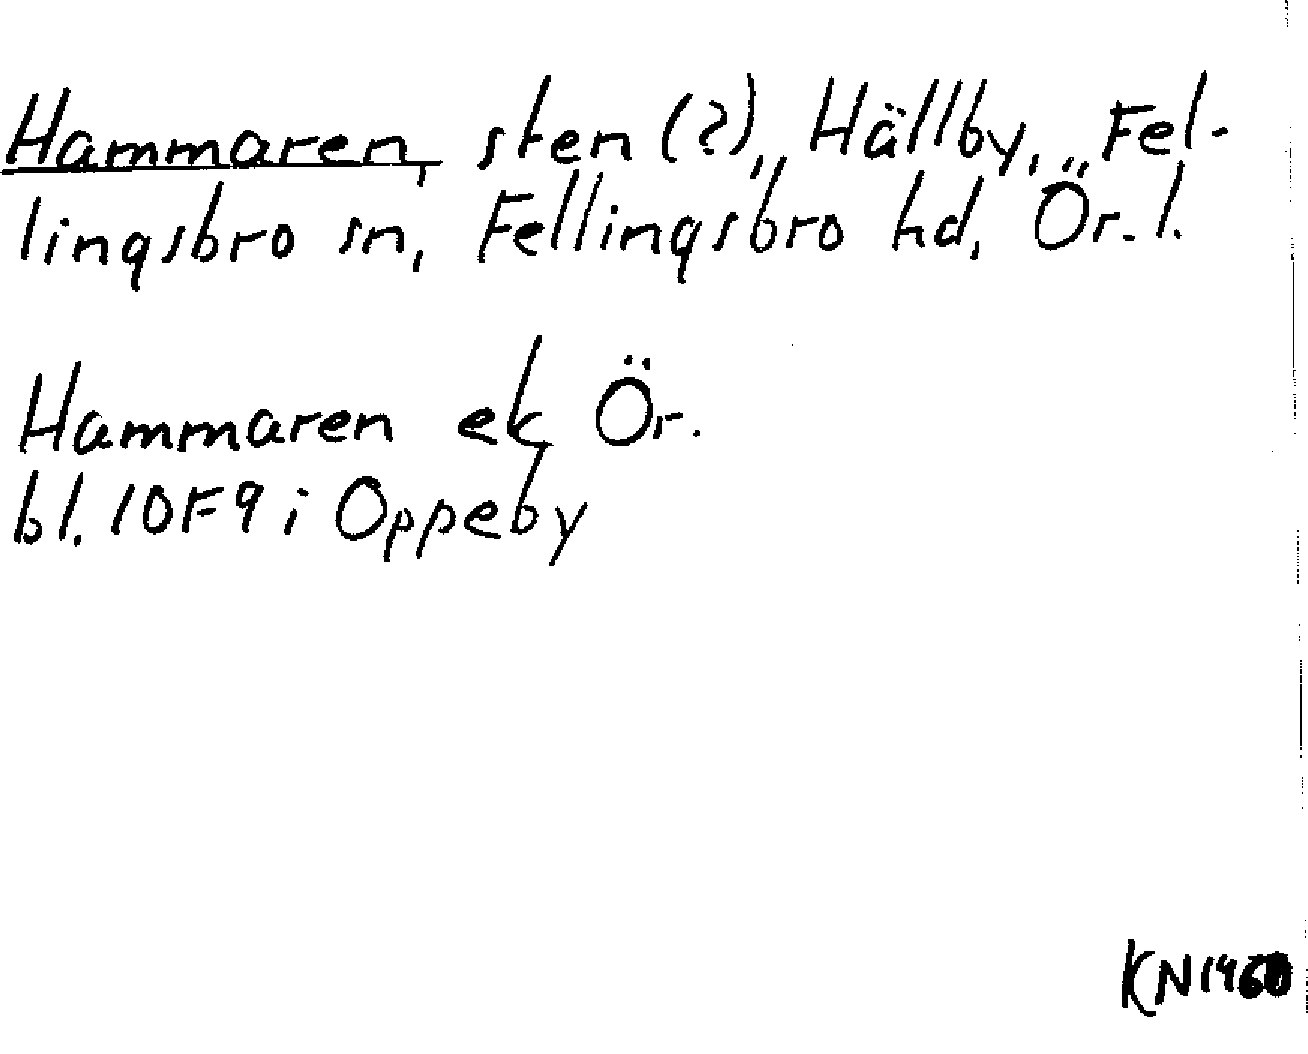 Hammaren, sten (?), Hällby, Fel-
lingsbro sn, Fellingsbro hd, Ör. l.
Hammaren ek Ör.
bl. 10F9 i Oppeby
KN 1960